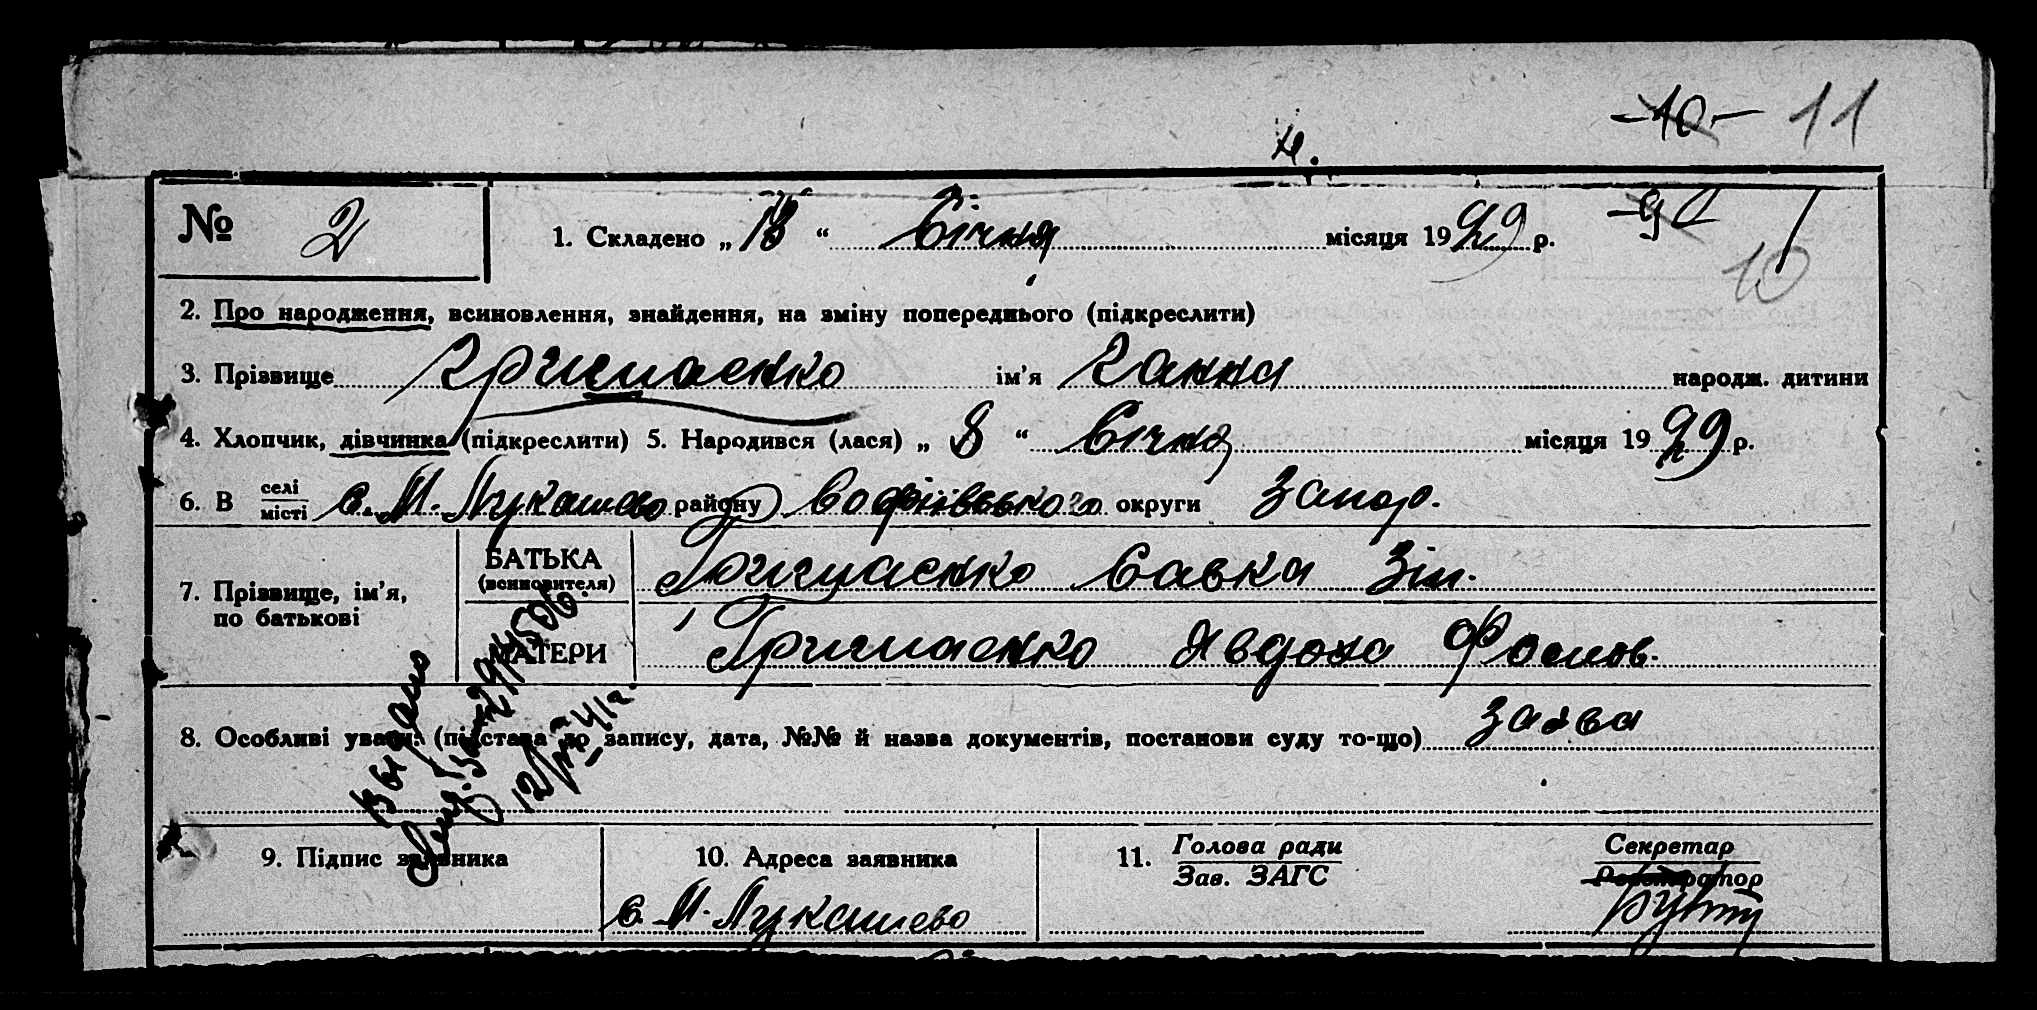 -10- 11
№ 2
1. Складено „ 13 “ Січня місяця 1929 р.
10
2. Про народження, всиновлення, знайдення, на зміну попереднього (підкреслити)
3. Прізвище Гришаенко ім'я Ганна народж. дитини
4. Хлопчик, дівчинка (підкреслити) 5. Народився (лася) „ 8 “ Січня місяця 1929 р.
6. В селі місті с. М. Лукашево району Софіївського округи Запор.
7. Прізвище, ім'я, по батькові
БАТЬКА (всиновителя) Гришаенко Савка Зін.
МАТЕРИ Гришаенко Явдоха Фомов.
8. Особливі уваги: (підстава до запису, дата, №№ й назва документів, постанови суду то-що) заява
9. Підпис заявника
10. Адреса заявника
с. М. Лукашево
11. Голова ради
Зав. ЗАГС
Секретар
Реєстратор